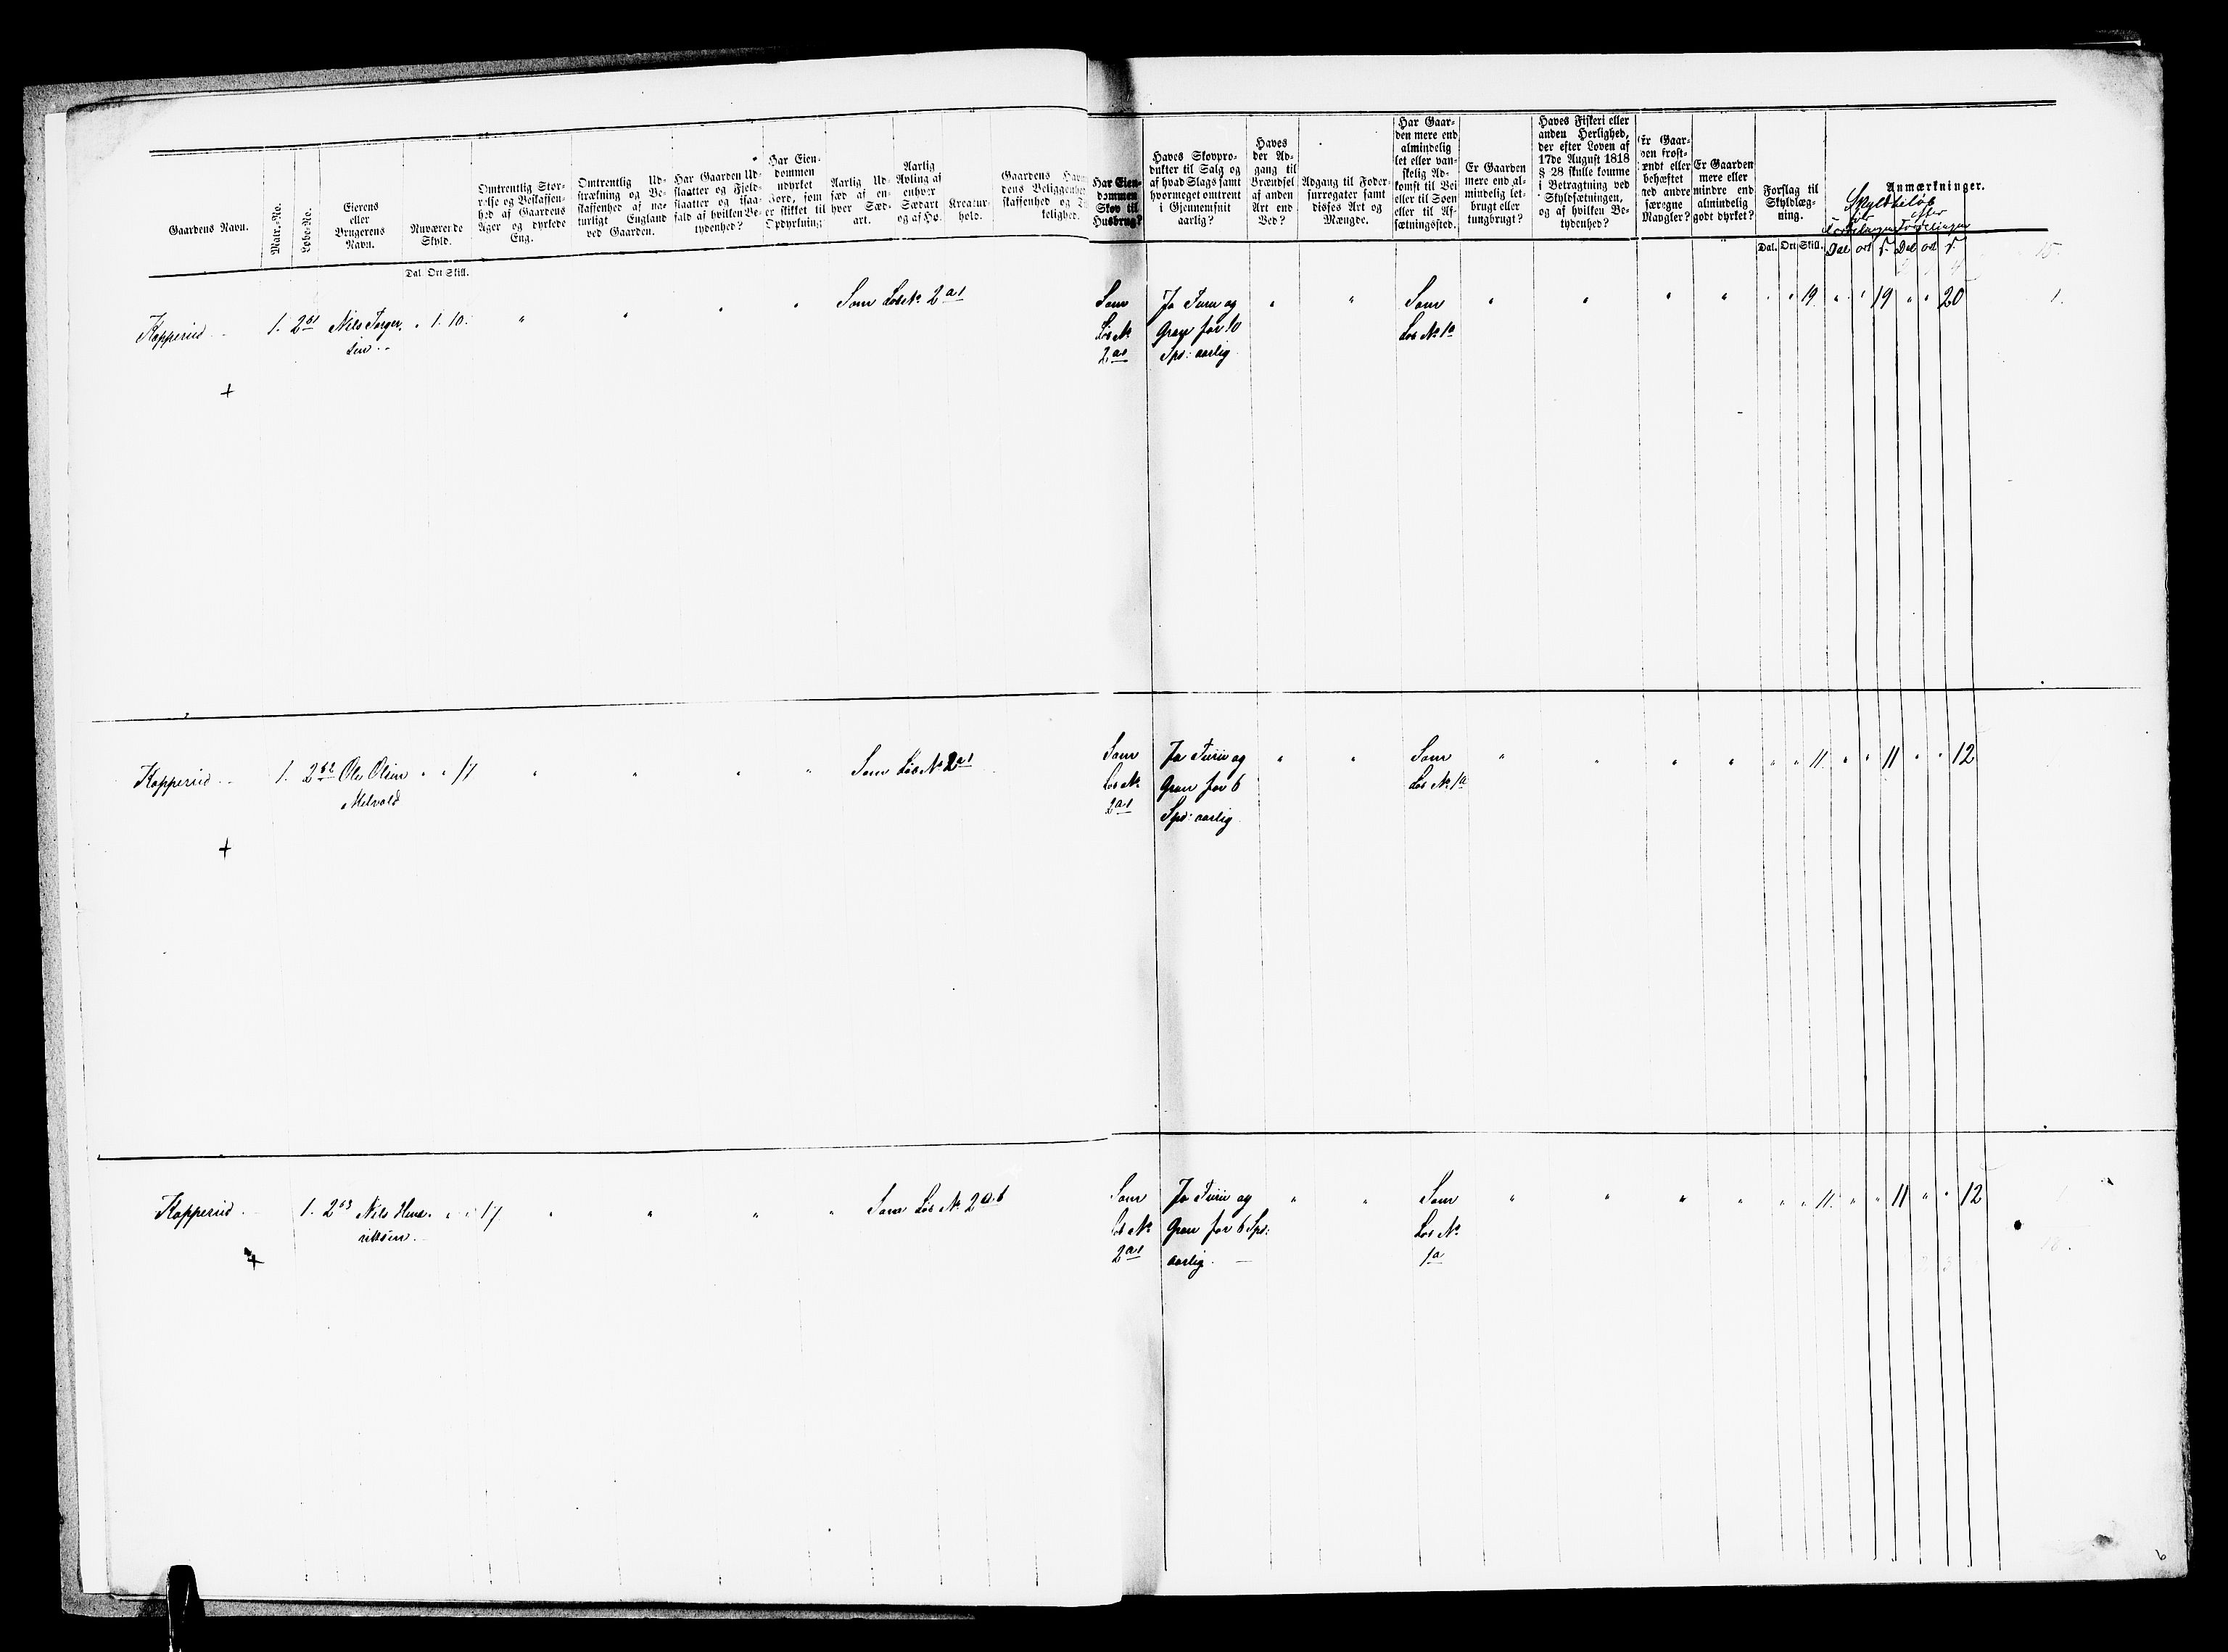 Gaardens Navn.
Matr.-No.
Løbe-No.
Eierens
eller
Brugerens
Navn.
Nuværende
Skyld.
Dal. Ort Skill.
Omtrentlig Stør-
relse og Beskaffen-
hed af Gaardens
Ager og dyrkede
Eng.
Omtrentlig Ud-
strækning og Be-
skaffenhed af na-
turligt England
ved Gaarden.
Har Gaarden Ud-
slaatter og Fjeld-
slaatter og isaa-
fald af hvilken Be-
tydenhed?
Har Eien-
dommen
udyrket
Jord, som
er skikket til
Opdyrkning
Aarlig Ud-
sæd af en-
hver Sæd-
art.
Aarlig
Avling af
enhver
Sædart
og af Hø.
Kreatur-
hold.
Gaardens Havn
dens Beliggenhed
skaffenhed og
kelighed.
Har Eien-
dommen
Skov til
Husbrug?
Haves Skovpro-
dukter til Salg og
af hvad Slags samt
hvormeget omtrent
i Gjennemsnit
aarlig?
Haves
der Ad-
gang til
Brændsel
af anden
Art end
Ved?
Adgang til Foder-
surrogater samt
disses Art og
Mængde.
Har Gaar-
den mere end
almindelig
let eller van-
skelig Ad-
komst til Vei
eller til Søen
eller til Af-
sætningssted.
Er Gaarden
mere end al-
mindelig let-
brugt eller
tungbrugt?
Haves Fiskeri eller
anden Herlighed,
der efter Loven af
17de August 1818
§ 28 skulle komme
i Betragtning ved
Skyldsætningen,
og af hvilken Be-
tydenhed?
Er Gaar-
den frost-
lændt eller
behæftet
med andre
særegne
Mangler?
Er Gaarden
mere eller
mindre end
almindelig
godt dyrket?
Forslag til
Skyldlæg-
ning.
Dal. Ort Skill.
Anmærkninger.
Skyldbeløb
før efter
Dal ort s. Dal ort s.
15.
Kopperud 1. 2 b1 Nils Torger- " 1. 10. " " " " Som Løb No 2 a1 Som Ja Furu og " " Som " " " " " " 19. " " 19 " " 20 1.
sen Løb No Gran for 10 Løb No 1a
2 a1 Spd: aarlig
+
Kopperud 1. 2 b2 Ole Olsen " " 17 " " " " Som Løb No 2 a1 Som Ja Furu og " " Som " " " " " " 11. " " 11 " " 12
Melvold Løb No Gran for 6 Løb No 1a
2 a1 Spd: aarlig
+
Kopperud 1. 2 b3 Nils Hend- " " 17 " " " " Som Løb No 2 a b Som Ja Furu og " " Som " " " " " " 11. " " 11 " " 12
riksen. Løb No Gran for 6 Spd: Løb No
2 a1 aarlig. 1a
+
6